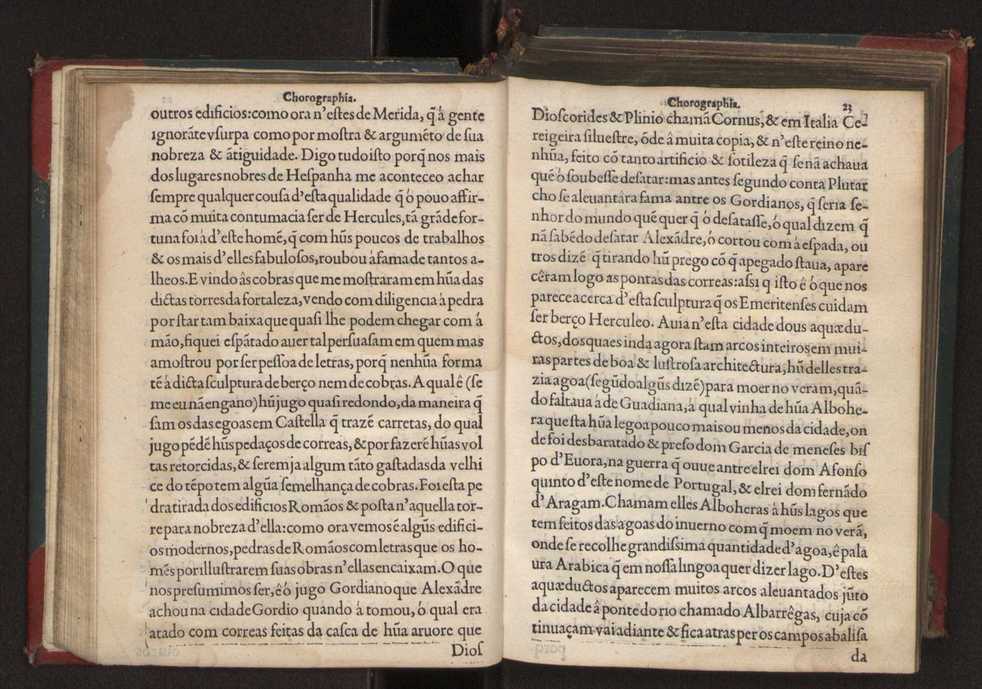 Chorographia.
outros edificios:como ora n'estes de Merida, q̃ â gente
ignorãte vsurpa como por mostra & argumẽto de sua
nobreza & ãtiguidade. Digo tudo isto porq̃ nos mais
dos lugares nobres de Hespanha me aconteceo achar
sempre qualquer cousa d'esta qualidade q̃ ò pouo affir-
ma cõ muita contumacia ser de Hercules, tã grãde for-
tuna foi â d'este homẽ, q̃ com hũs poucos de trabalhos
& os mais d'elles fabulosos, roubou à fama de tantos a-
lheos. E vindo âs cobras que me mostraram em hũa das
dictas torres da fortaleza, vendo com diligencia à pedra
por star tam baixa que quasi lhe podem chegar com á
mão, fiquei espãtado auer tal persuasam em quem mas
amostrou por ser pessoa de letras, porq̃ nenhũa forma
tẽ â dicta sculptura de berço nem de cobras. A qual ê (se
me eu nã engano) hũ jugo quasi redondo, da maneira q̃
sam os das egoas em Castella q̃ trazẽ carretas, do qual
jugo pẽdẽ hũs pedaços de correas, & por fazerẽ hũas vol
tas retorcidas, & serem ja algum tãto gastadas da velhi
ce do tẽpo tem algũa semelhança de cobras. Foi esta pe
dra tirada dos edificios Romãos & posta n'aquella tor-
re para nobreza d'ella: como ora vemos ẽ algũs edifici-
os modernos, pedras de Romãos com letras que os ho-
mẽs por illustrarem suas obras n'ellas encaixam. O que
nos presumimos ser, ê ó jugo Gordiano que Alexãdre
achou na cidade Gordio quando â tomou, ò qual era
atado com correas feitas da casca de hũa aruore que
Dios
Chorographia.
23
Dioscorides & Plinio chamã Cornus, & em Italia Ce-
reigeira siluestre, õde â muita copia, & n'este reino ne-
nhũa, feito cõ tanto artificio & sotileza q̃ se nã achaua
quẽ ò soubesse desatar: mas antes segundo conta Plutar
cho se aleuantâra fama antre os Gordianos, q̃ seria se-
nhor do mundo quẽ quer q̃ ò desatasse, ò qual dizem q̃
nã sabẽdo desatar Alexãdre, ò cortou com â espada, ou
tros dizẽ q̃ tirando hũ prego cõ q̃ apegado staua, apare
cêram logo as pontas das correas: assi q̃ isto ê ò que nos
parece acerca d'esta sculptura q̃ os Emeritenses cuidam
ser berço Herculeo. Auia n'esta cidade dous aquædu-
ctos, dos quaes inda agora stam arcos inteiros em mui-
tas partes de boa & lustrosa architectura, hũ delles tra-
zia agoa (segũdo algũs dizẽ) para moer no veram, quã-
do faltaua â de Guadiana, à qual vinha de hũa Albohe-
ra que sta hũa legoa pouco mais ou menos da cidade, on
de foi desbaratado & preso dom Garcia de meneses bis
po d'Euora, na guerra q̃ ouue antre elrei dom Afonso
quinto d'este nome de Portugal, & elrei dom fernãdo
d'Aragam. Chamam elles Alboheras â hũs lagos que
tem feitos das agoas do inuerno com q̃ moem no verã,
onde se recolhe grandissima quantidade d'agoa, ê pala
ura Arabica q̃ em nossa lingoa quer dizer lago. D'estes
aquæductos aparecem muitos arcos aleuantados jũto
da cidade â ponte do rio chamado Albarrêgas, cuja cõ
tinuaçam vai adiante & fica atras per os campos abalisa
da